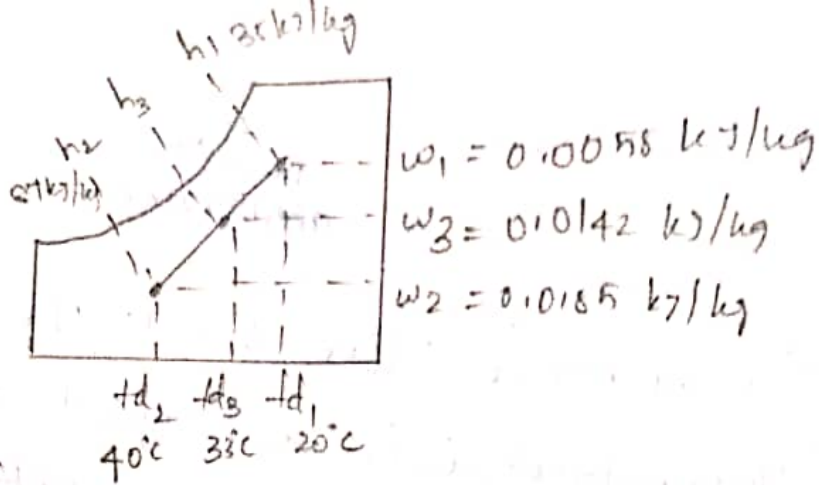 h1 35 kJ/kg
h3
h2
67 kJ/kg
ω1 = 0.0058 kJ/kg
ω3 = 0.0142 kJ/kg
ω2 = 0.0185 kJ/kg
td2 td3 td1
40°C 33°C 20°C